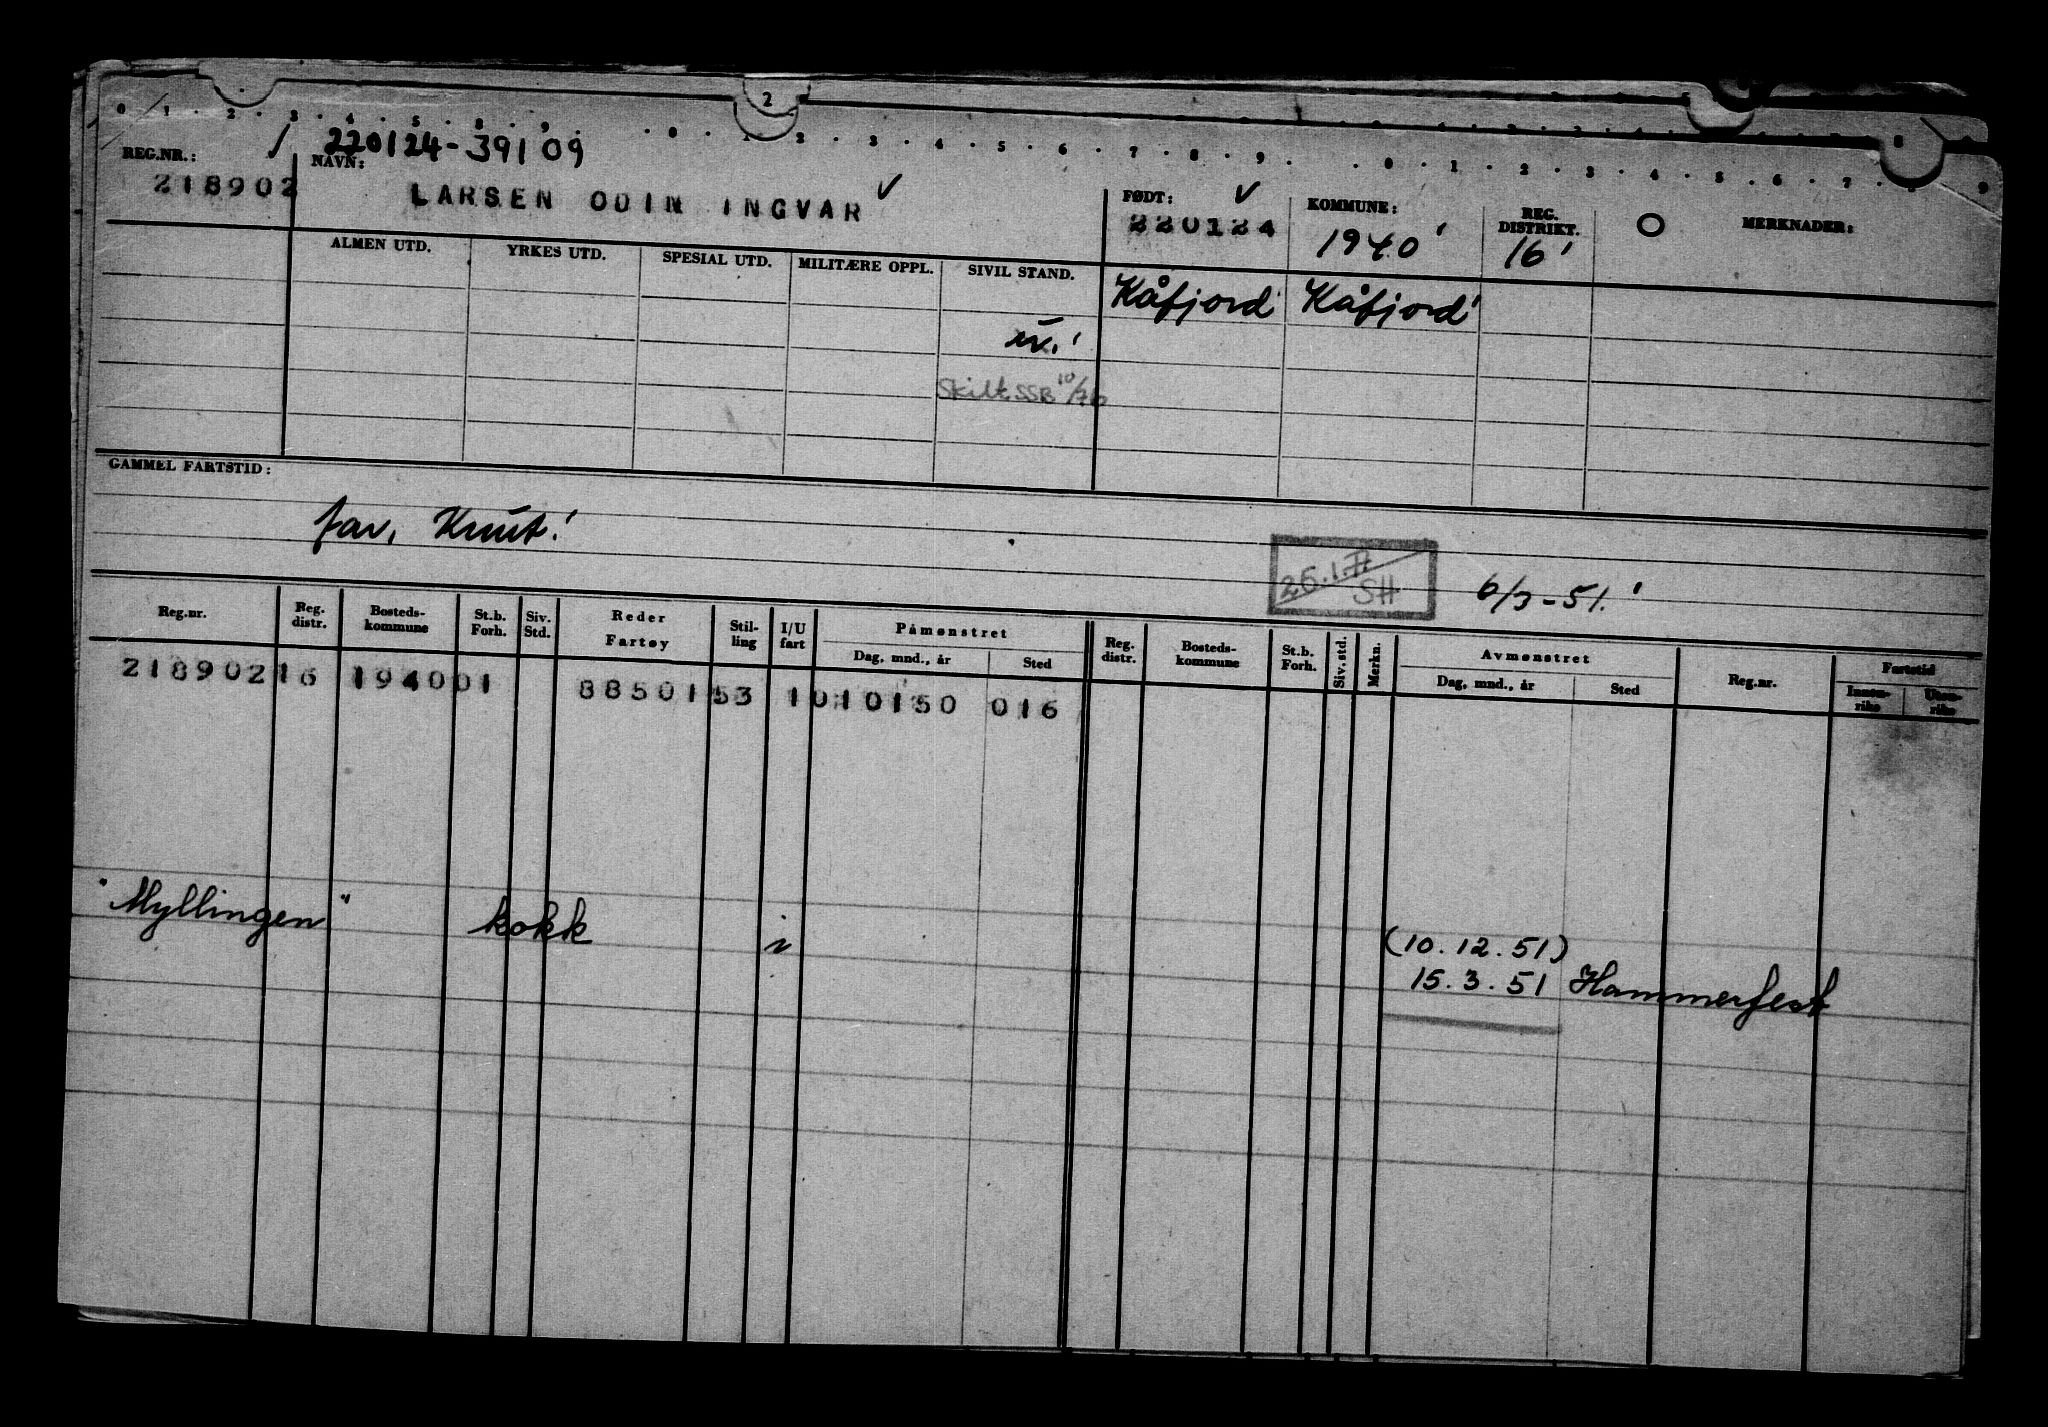 2
0 1 2 3 4 5 8 9 0 1 2 3 4 5 6 7 8 9 0 1 2 3 4 5 6 7 8 9
220124-39109
REG.NR.: NAVN:
218902 LARSEN ODIN INGVAR
FØDT: KOMMUNE: REG. DISTRIKT. MERKNADER:
220124 1940 16
ALMEN UTD. YRKES UTD. SPESIAL UTD. MILITÆRE OPPL. SIVIL STAND.
Kåfjord Kåfjord
Skilt SSB 10/76
GAMMEL FARTSTID:
far, Knut!
26.1. SH
6/3-51.
Reg.nr. Reg. distr. Bosteds-kommune St.b. Forh. Siv. Std. Reder Fartøy Stil-ling I/U fart Påmønstret Dag, mnd., år Sted Reg. distr. Bosteds-kommune St.b. Forh. Siv. std. Merkn. Avmønstret Dag, mnd., år Sted Reg.nr. Fartstid Innen-riks Uten-riks
218902 16 1940 01 88501 53 1 010150 016
"Myllingen" kokk i
(10.12.51)
15.3.51 Hammerfest